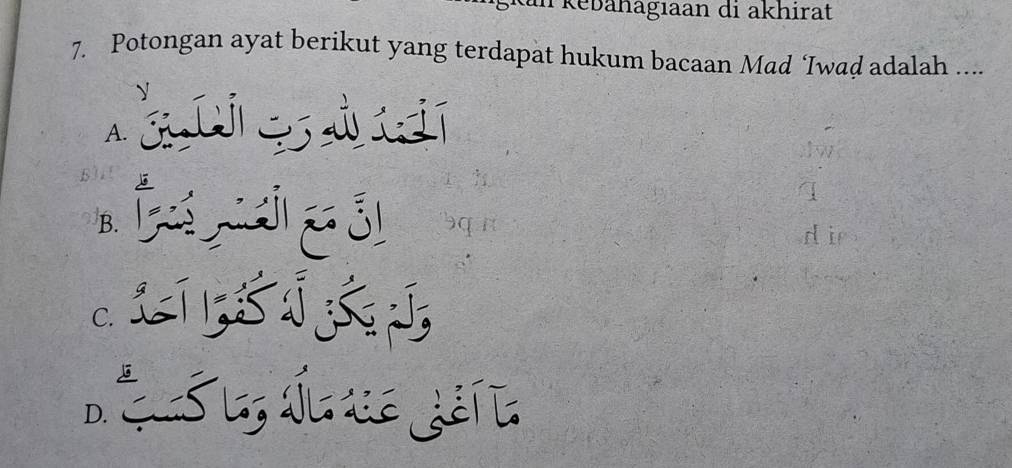 kebahagiaan di akhirat
7. Potongan ayat berikut yang terdapat hukum bacaan Mad ‘Iwaḍ adalah ....
A. اَلْحَمْدُ لِلّٰهِ رَبِّ الْعٰلَمِيْنَۙ
B. اِنَّ مَعَ الْعُسْرِ يُسْرًاۗ
C. وَلَمْ يَكُنْ لَّهٗ كُفُوًا اَحَدٌ
D. مَآ اَغْنٰى عَنْهُ مَالُهٗ وَمَا كَسَبَۗ